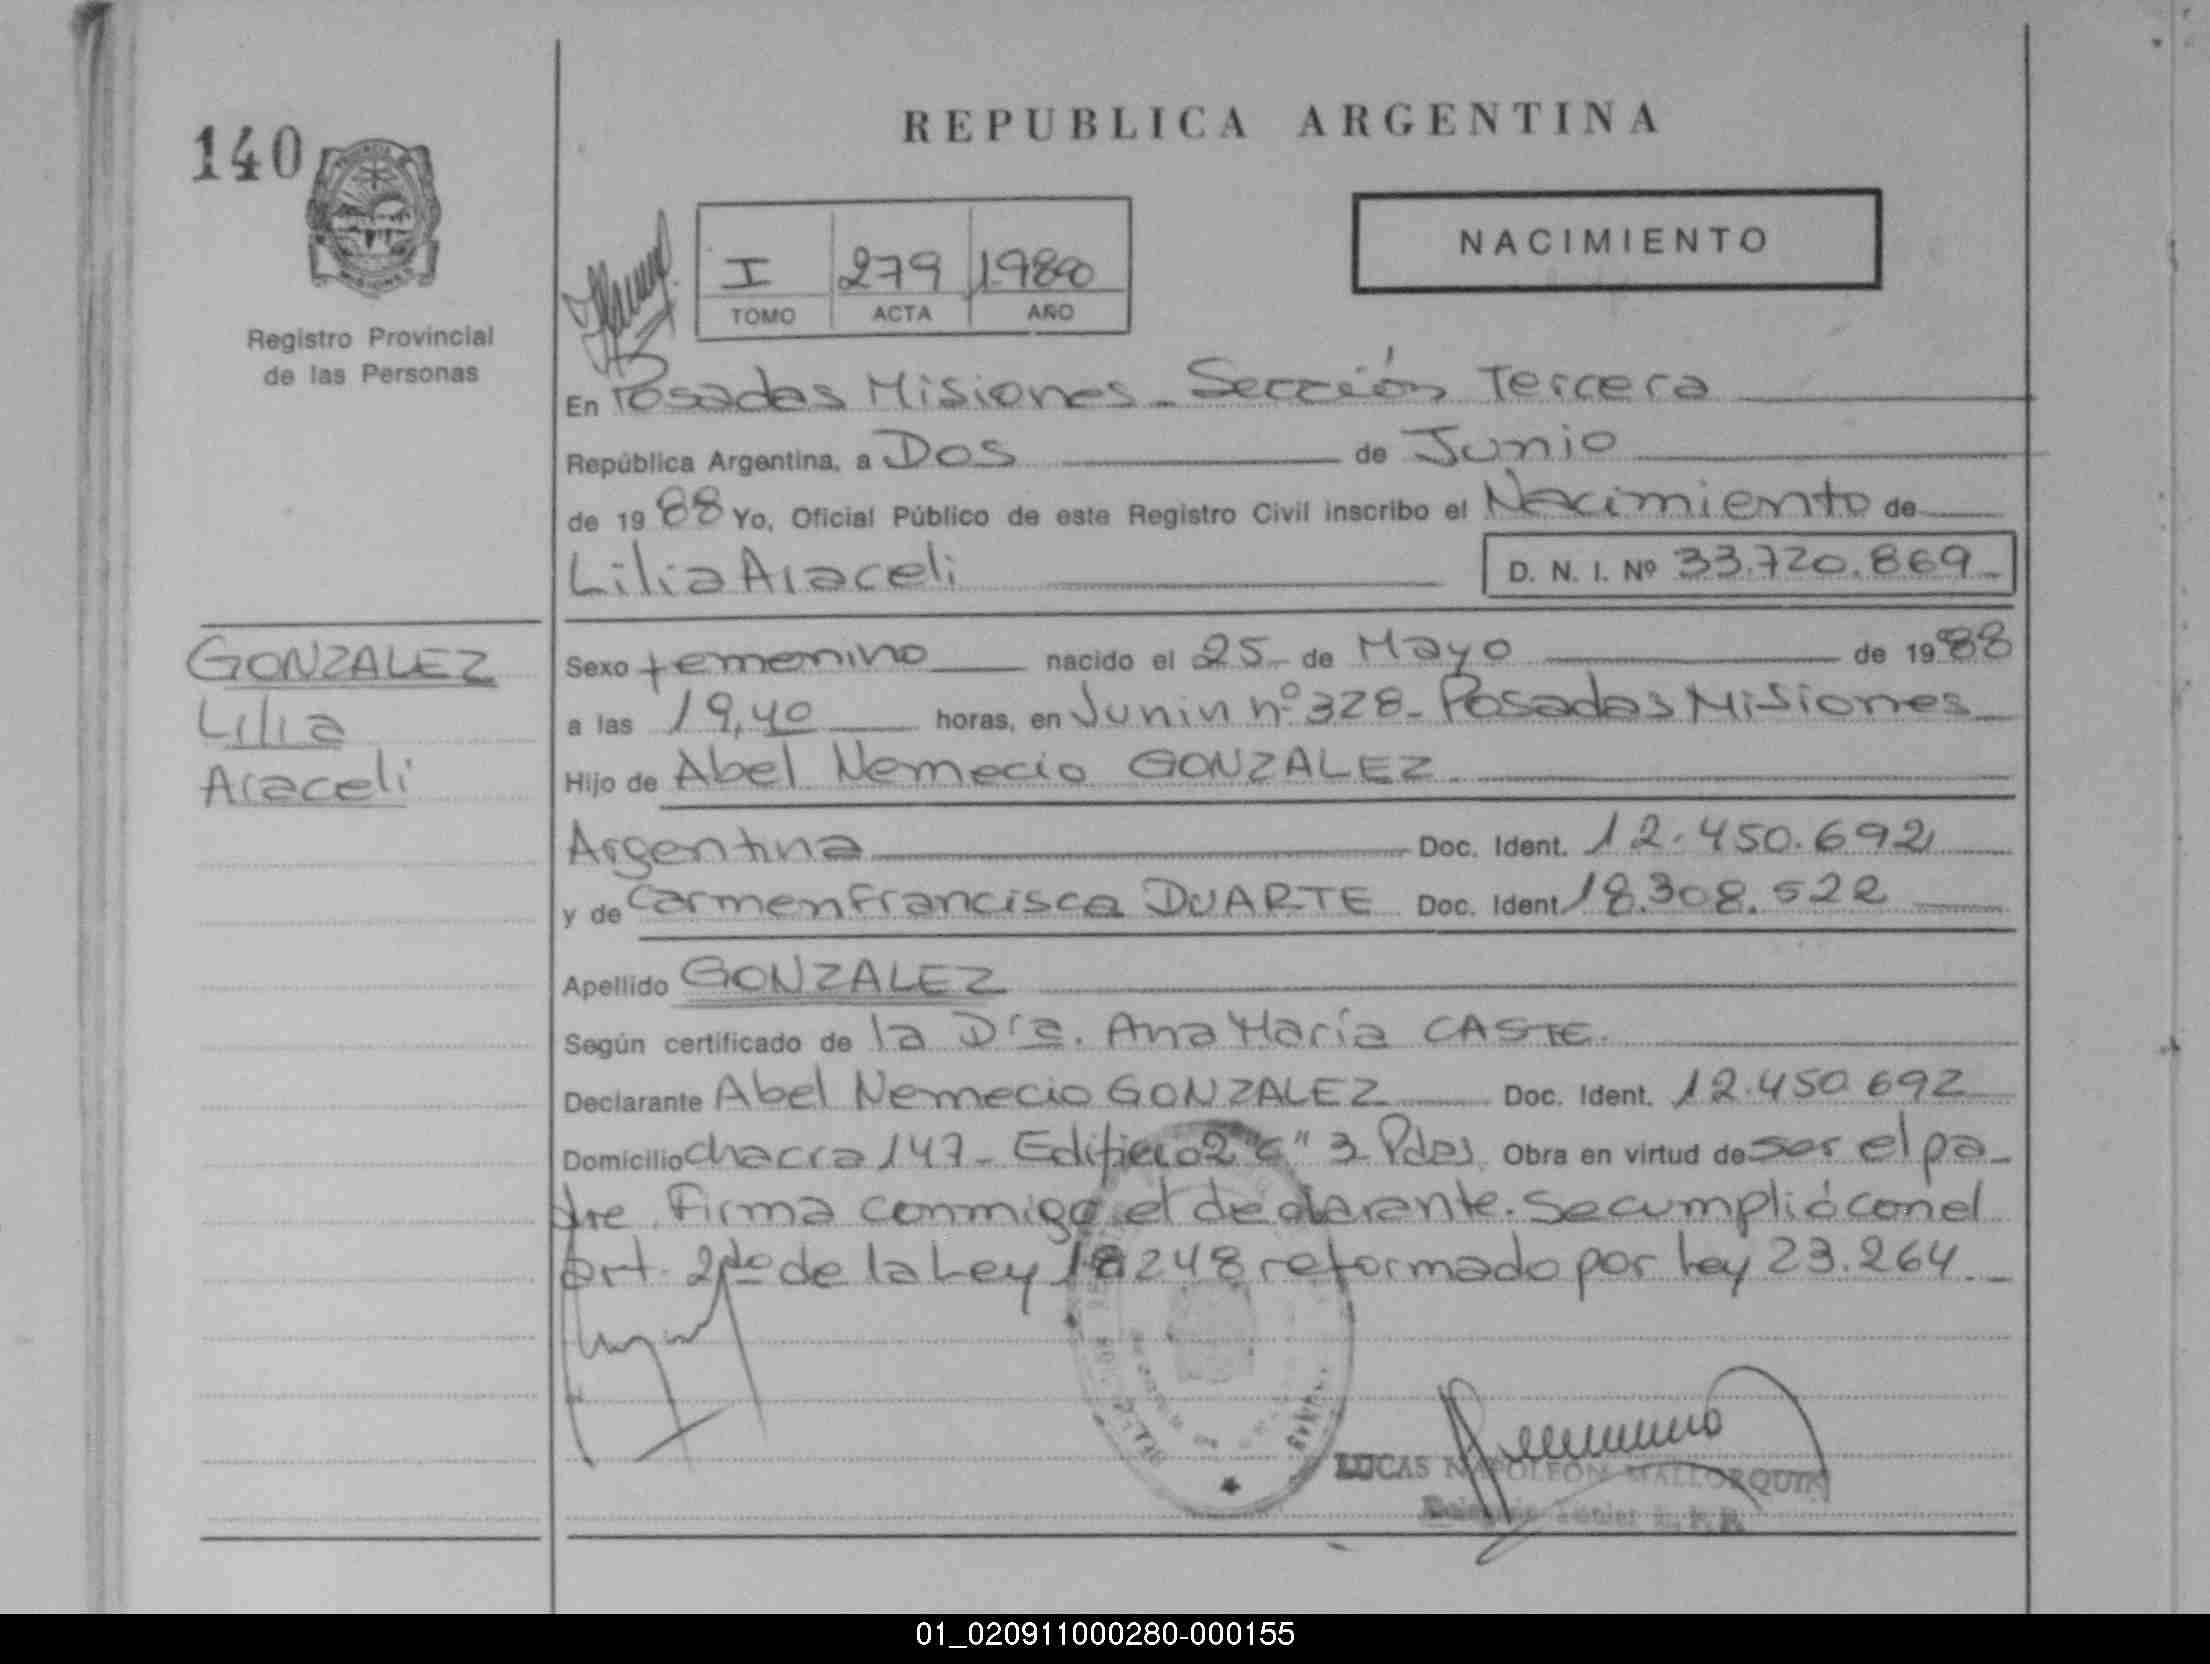 REPUBLICA ARGENTINA
140
NACIMIENTO
I 279 1988
TOMO ACTA AÑO
Registro Provincial
de las Personas
En Posadas Misiones - Sección Tercera
República Argentina, a Dos de Junio
de 1988 Yo, Oficial Público de este Registro Civil inscribo el Nacimiento de
Lilia Araceli D. N. I. Nº 33.720.869
GONZALEZ
Lilia
Araceli
Sexo femenino nacido el 25 de Mayo de 1988
a las 19,40 horas, en Junin nº 328 - Posadas Misiones
Hijo de Abel Nemecio GONZALEZ
Argentina Doc. Ident. 12.450.692
y de Carmen Francisca DUARTE Doc. Ident 18.308.522
Apellido GONZALEZ
Según certificado de la Dra. Ana María CASTE.
Declarante Abel Nemecio GONZALEZ Doc. Ident. 12.450.692
Domicilio chacra 147 - Edificio 2 "c" 3 Pdas. Obra en virtud de ser el pa-
dre. Firma conmigo el declarante. Se cumplió con el
art. 2do de la Ley 18248 reformado por Ley 23.264.
LUCAS NAPOLEON MALLORQUIN
01_020911000280-000155